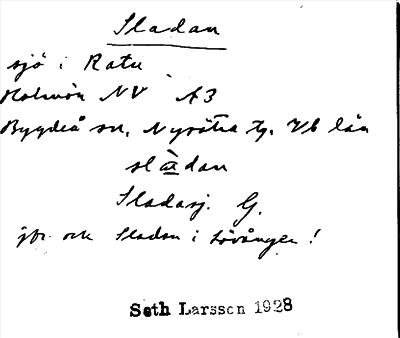 Sladan
sjö i Ratu
Holmön NV A3
Bygdeå sn, Nysätra tg. Vb län
slàdan
Sladasj. G.
jfr. ock Sladan i Lövånger!
Seth Larsson 1928